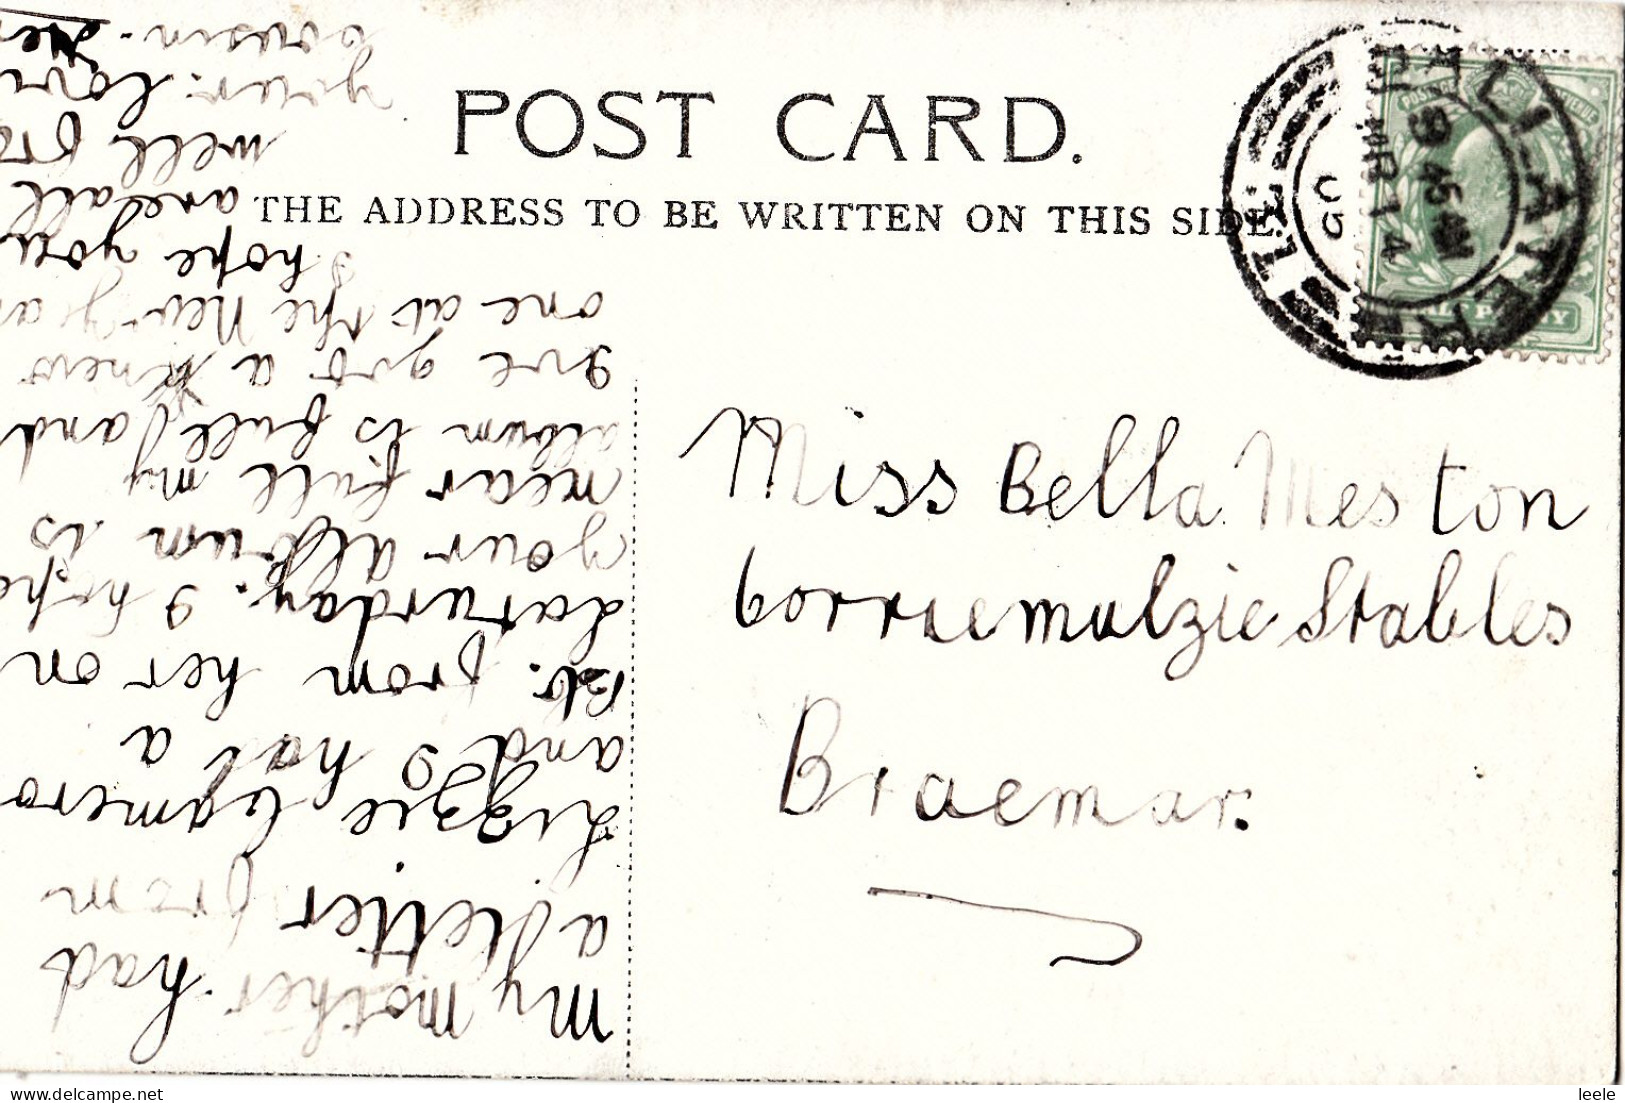 POST CARD.
THE ADDRESS TO BE WRITTEN ON THIS SIDE.
BALLATER
9 45 AM
MR 14
POSTAGE REVENUE
HALF PENNY
Miss Bella Meston
Corriemulzie Stables
Braemar.
My Mother had
a letter from
Lizzie Camero
and I had a
from her on
Saturday. I hope
your album is
near full my
album is full and
Ive got a new
one at the New year
I hope you
are all
well
your
cousin.
leele